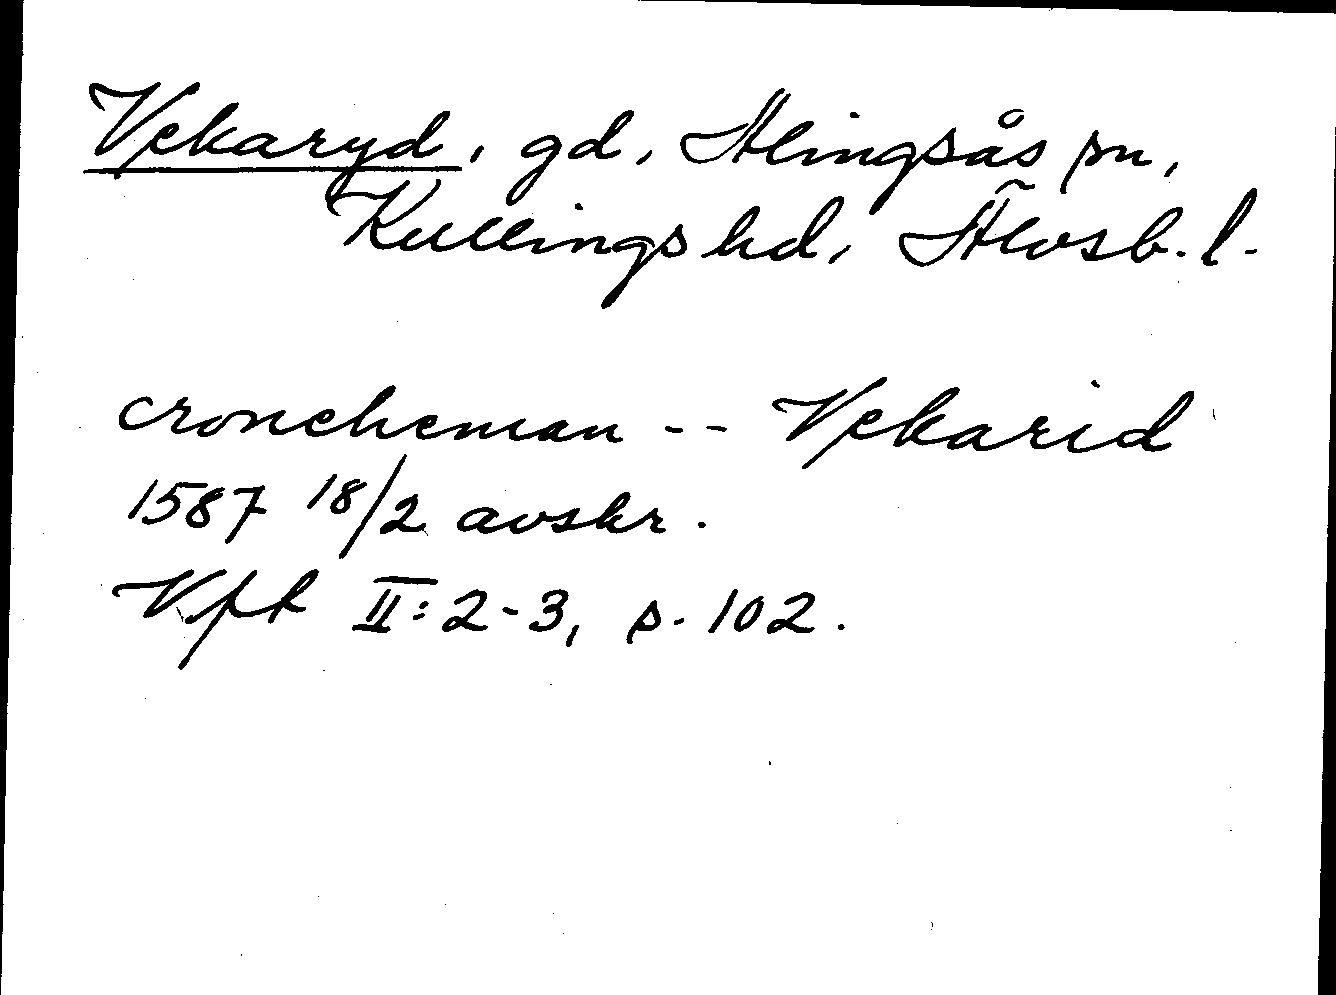 Vekaryd, gd, Alingsås sn,
Kullings hd, Älvsb. l.
croneheman -- Vekarid
1587 18/2 avskr.
Vfk II: 2-3, s. 102.